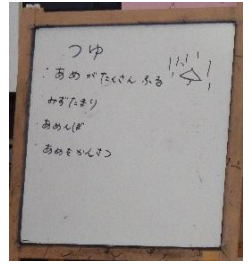 つゆ
・あめがたくさんふる
みずたまり
あめんぼ
あめをかんさつ